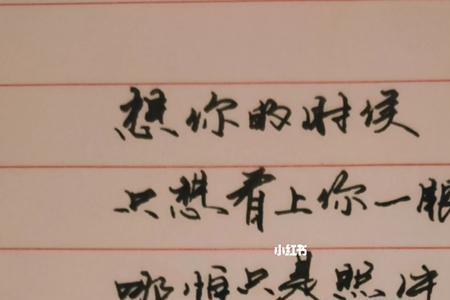 想你的时候
只想看上你一眼
小红书
哪怕只是照片